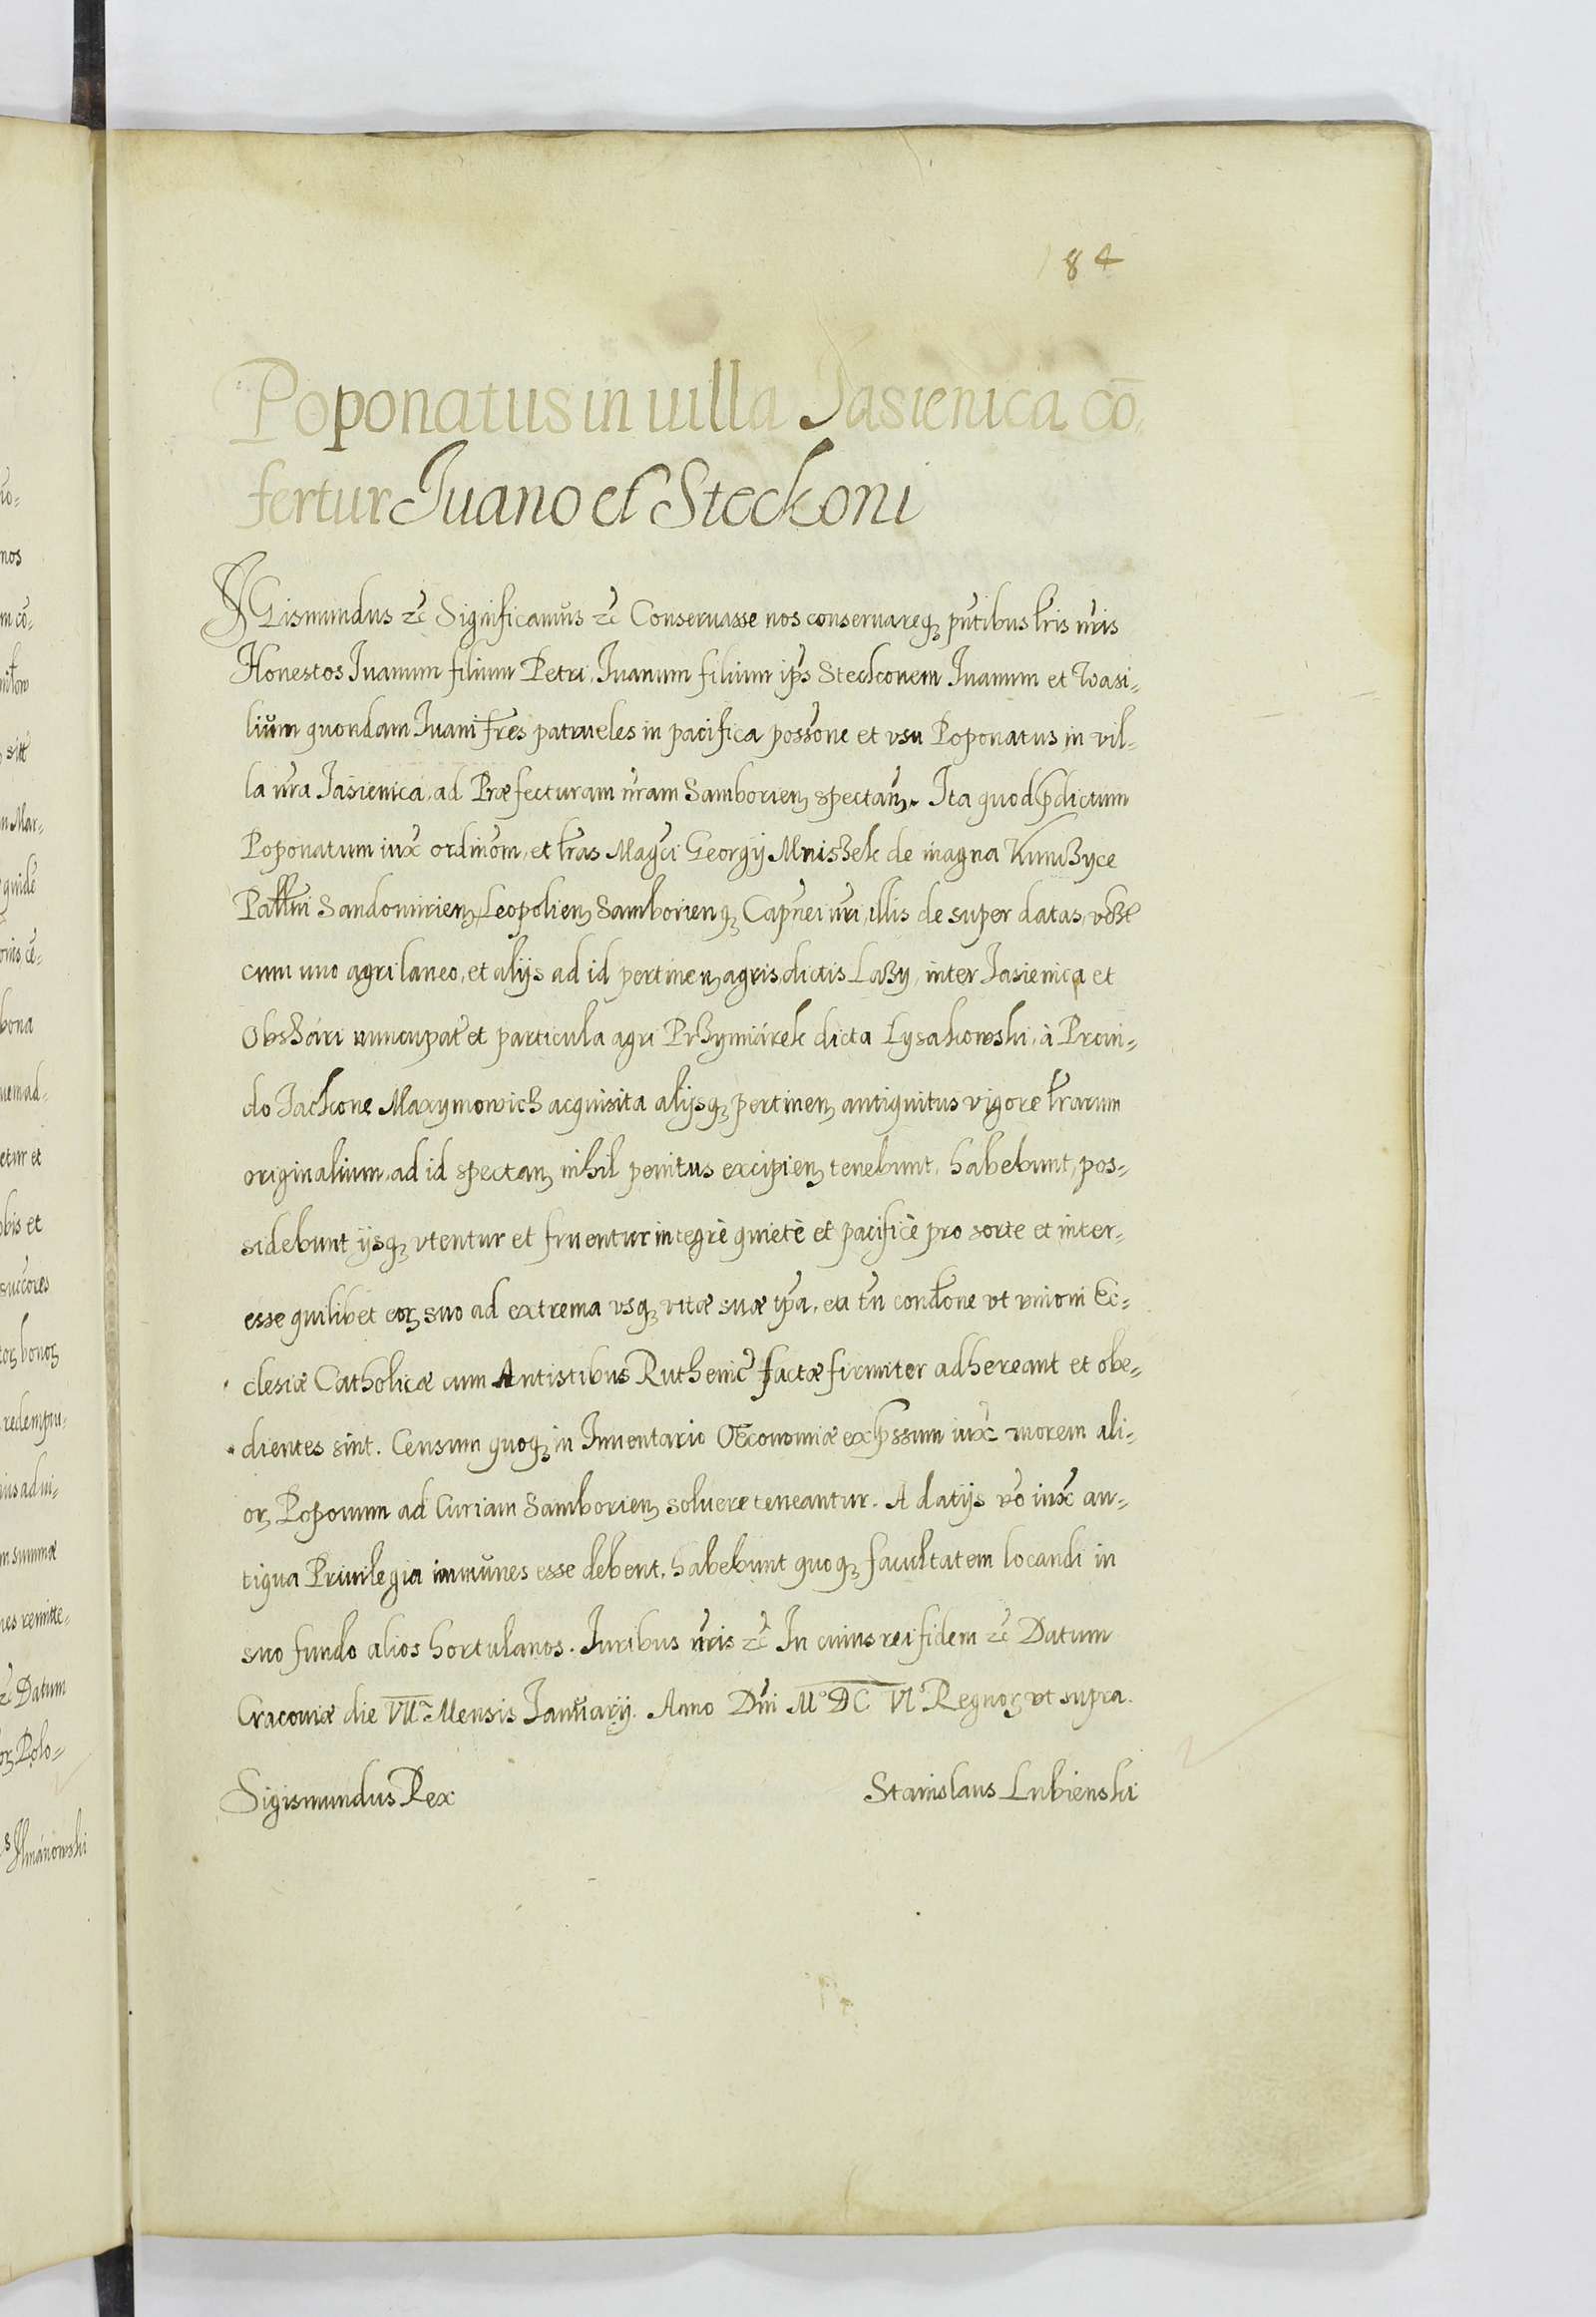 184
Poponatus in uilla Jasienica cō,
fertur Juano et Steckoni
SIGismundus zc̃ Significamus zc̃ Conseruasse nos conseruareq̨ pñtibus lr̃is nr̃is
Honestos Juanum filium Petri, Juanum filium ip̃s Steckonem Juanum et Wasi-
lium quondam Juani fr̃es patrueles in pacifica poss̃one et vsu Poponatus in vil-
la nr̃a Jasienica, ad Præfecturam nr̃am Samborień spectań. Ita quod p̃dictum
Poponatum iux̃ ordinõm, et lr̃as Magc̃i Georgij Mnisзek de magna Kunczyce
Pall̃ni Sandomirień, Leopolień Samborień q̨ Capñei nr̃i, illis de super datas, vi̾dзt
cum uno agri laneo, et alijs ad id pertineń agris, dictis Laзy, inter Jasienica et
Obsзári nuncupat̃ et particula agri Prзymiárek dicta Lysakowski, à Provi-
do Jackone Maxymowicз acquisita alijsq̨ pertineń antiquitus vigore lr̃arum
originalium, ad id spectań nihil penitus excipień tenebunt, habebunt, pos-
sidebunt ijsq̨ vtentur et fruentur integrè quietè et pacificè pro sorte et inter-
esse quilibet eorꝫ suo ad extrema vsq̨ vitæ suæ tp̃a, ea tñ cond̃one vt vnioni Ec-
clesiæ Catholicæ cum Antistibus Ruthenic̃ factæ firmiter adhereant et obe-
dientes sint. Censum quoq̨ in Inuentario Oeconomiæ exp̃ssum iux̃ morem ali-
orꝫ Poponum ad Curiam Samborień soluere teneantur. A datijs vo̾ iux̃ an-
tiqua Priuilegia immunes esse debent, habebunt quoq̨ facultatem locandi in
suo fundo alios hortulanos. Iuribus nr̃is zc̃ In cuius rei fidem zc̃ Datum
Cracouiæ die VIIa Mensis Januarij. Anno Dñi Mo DC VI Regnorꝫ vt supra.
Sigismundus Rex
Stanislaus Lubienski